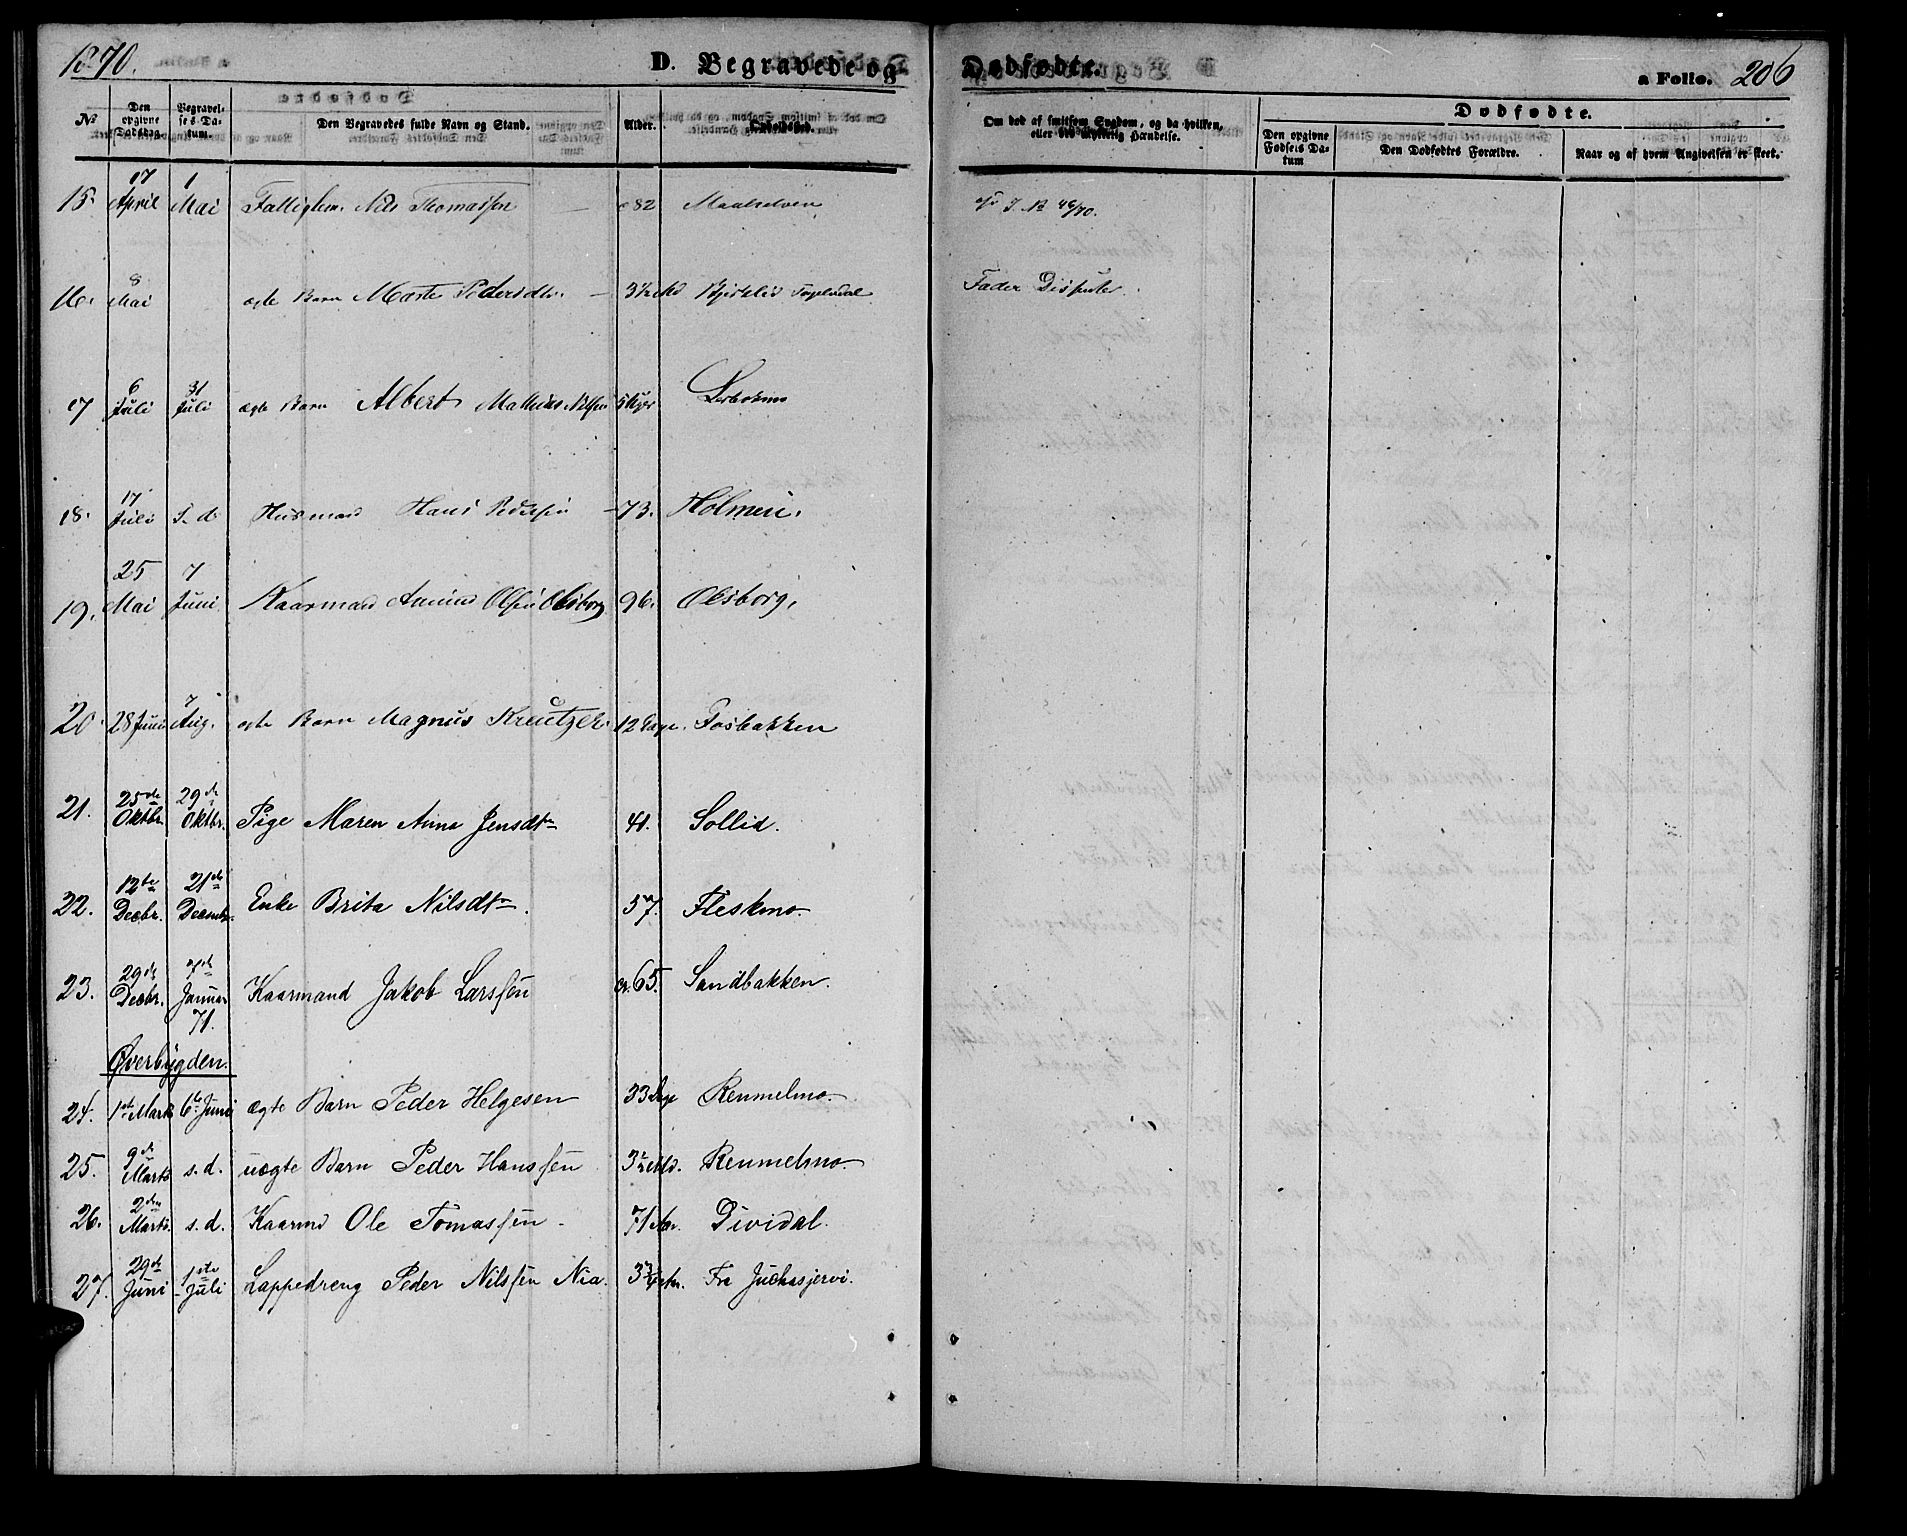 1870. D. Begravede og Dødfødte. a Folio. 206
No Den opgivne Dødsdag. Begravelses Datum. Den Begravedes fulde Navn og Stand. Alder. Opholdssted. Om død af smitsom Sygdom, og da hvilken, eller ved ulykkelig Hændelse. Dødfødte.
Den opgivne Fødsels Datum Den Dødfødtes Forældre. Naar og af hvem Angivelsen er skeet.
15. 17 April 1 Mai Fattiglem. Nils Thomassen 82 Maalselven J. N 46/70.
16. 8 Mai ægte Barn Marte Pedersdtr. 3½ Md Fader
17 6 Juli 31 Juli ægte Barn Albert Mathias Nilsen 5 Uger
18. 17 Juli S. d. Husmand Hans Pedersen 73. Holmen.
19. 25 Mai 7 Juni Kaarmand Amund Olsen Olsborg 96. Olsborg.
20. 28 Juni 7 Aug. ægte Barn Magnus Kreutzer. 12 Dage. Fosbakken
21. 25de Oktbr. 29de Oktbr. Pige Maren Anna Jensdtr 41. Sollid.
22. 12te Decbr. 21de Decembr. Enke Brita Nilsdtr. 57. Fleskmo.
23. 29de Decbr. 7de Januar 71. Kaarmand Jakob Larssen ca. 65. Sandbakken.
Øverbygden.
24. 1ste Marts 6te Juni ægte Barn Peder Helgesen 33 Dage Remmelmo.
25. 9de Marts s. d. uægte Barn Peder Hanssen 3½ Md. Remmelmo.
26. 2den Marts. s. d. Kaarmd Ole Tomassen. 71 Aar. Dividal.
27. 29de Juni 1ste Juli Lappedreng Peder Nilssen Nia. 3¾ Aar. Fra Juckasjervi.